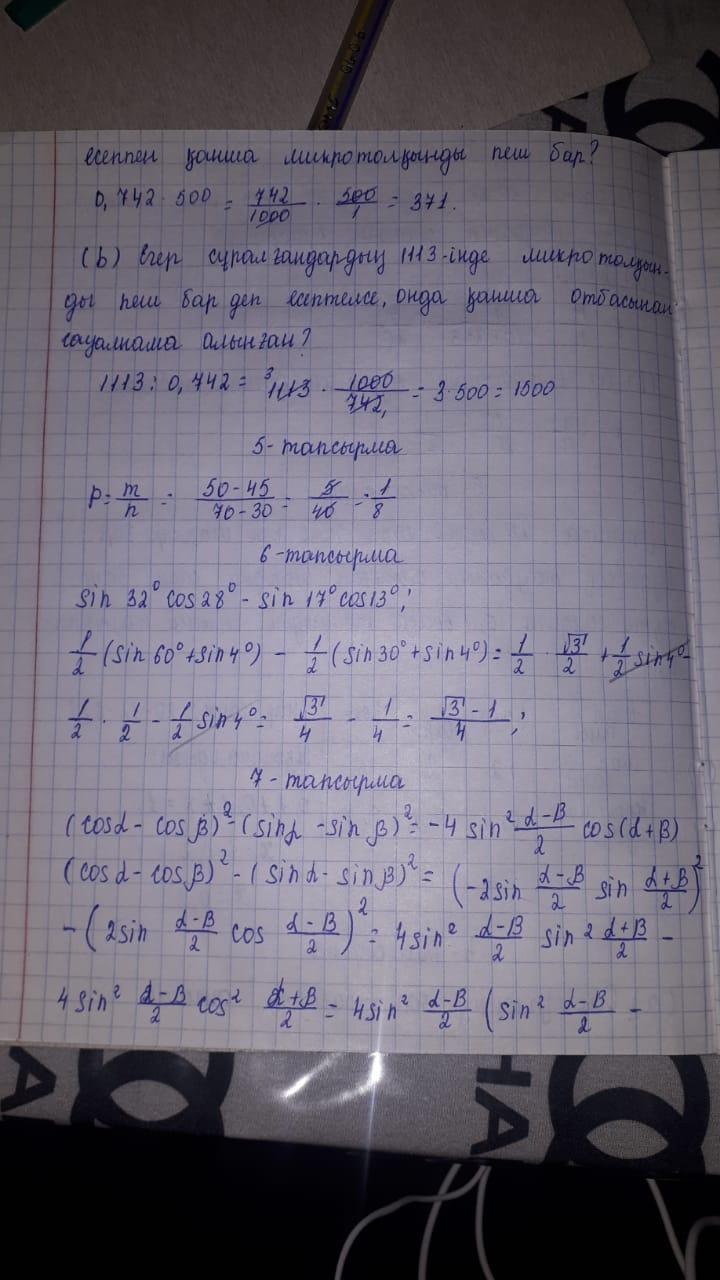 есеппен қанша микротолқынды пеш бар?
0,742 · 500 = 742/1000 · 500/1 = 371.
(b) Егер сұралғандардың 1113-інде микротолқын-
ды пеш бар деп есептелсе, онда қанша отбасынан
сауалнама алынған?
1113 : 0,742 = ³1113 · 1000/742₁ = 3·500 = 1500
5-тапсырма
P = m/n = 50-45/70-30 = 5/40 = 1/8
6-тапсырма
sin 32° cos 28° - sin 17° cos 13°;
1/2 (sin 60° + sin 4°) - 1/2 (sin 30° + sin 4°) = 1/2 · √3/2 + 1/2 sin 4° -
1/2 · 1/2 - 1/2 sin 4° = √3/4 - 1/4 = √3-1/4;
7-тапсырма
(cosα - cosβ)² - (sinα - sinβ)² = -4 sin² α-β/2 cos(α+β)
(cosα - cosβ)² - (sinα - sinβ)² = (-2sin α-β/2 sin α+β/2)²
-(2sin α-β/2 cos α-β/2)² = 4sin² α-β/2 sin² α+β/2 -
4sin² α-β/2 cos² α+β/2 = 4sin² α-β/2 (sin² α-β/2 -
НА